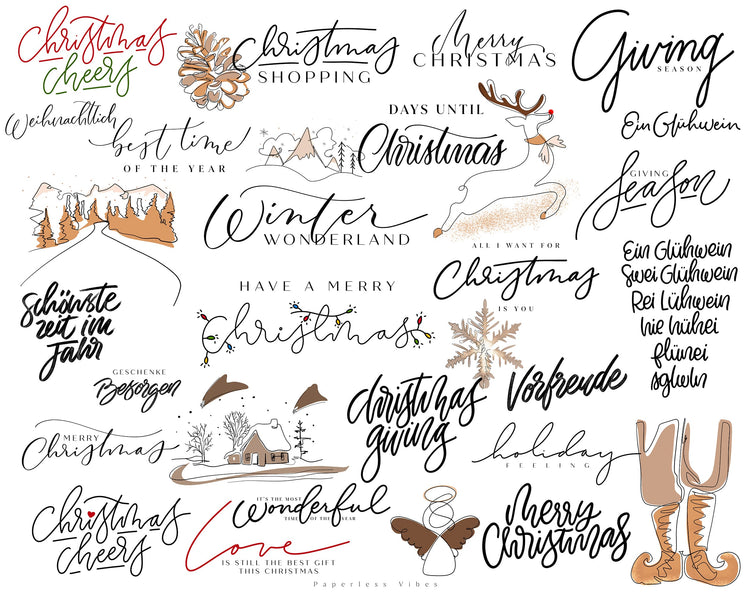 Christmas
cheers
Christmas
SHOPPING
Merry
CHRISTMAS
Giving
SEASON
Weihnachtlich
best time
OF THE YEAR
DAYS UNTIL
Christmas
Ein Glühwein
GIVING
Season
Winter
WONDERLAND
ALL I WANT FOR
Christmas
IS YOU
Ein Glühwein
Swei Glühwein
Rei Lühwein
hie hühei
flünei
sglwln
schönste
zeit im
Jahr
HAVE A MERRY
Christmas
GESCHENKE
Besorgen
Christmas
giving
Vorfreude
MERRY
Christmas
holiday
FEELING
Christmas
cheers
IT'S THE MOST
Wonderful
TIME OF THE YEAR
Love
IS STILL THE BEST GIFT
THIS CHRISTMAS
Merry
Christmas
Paperless Vibes